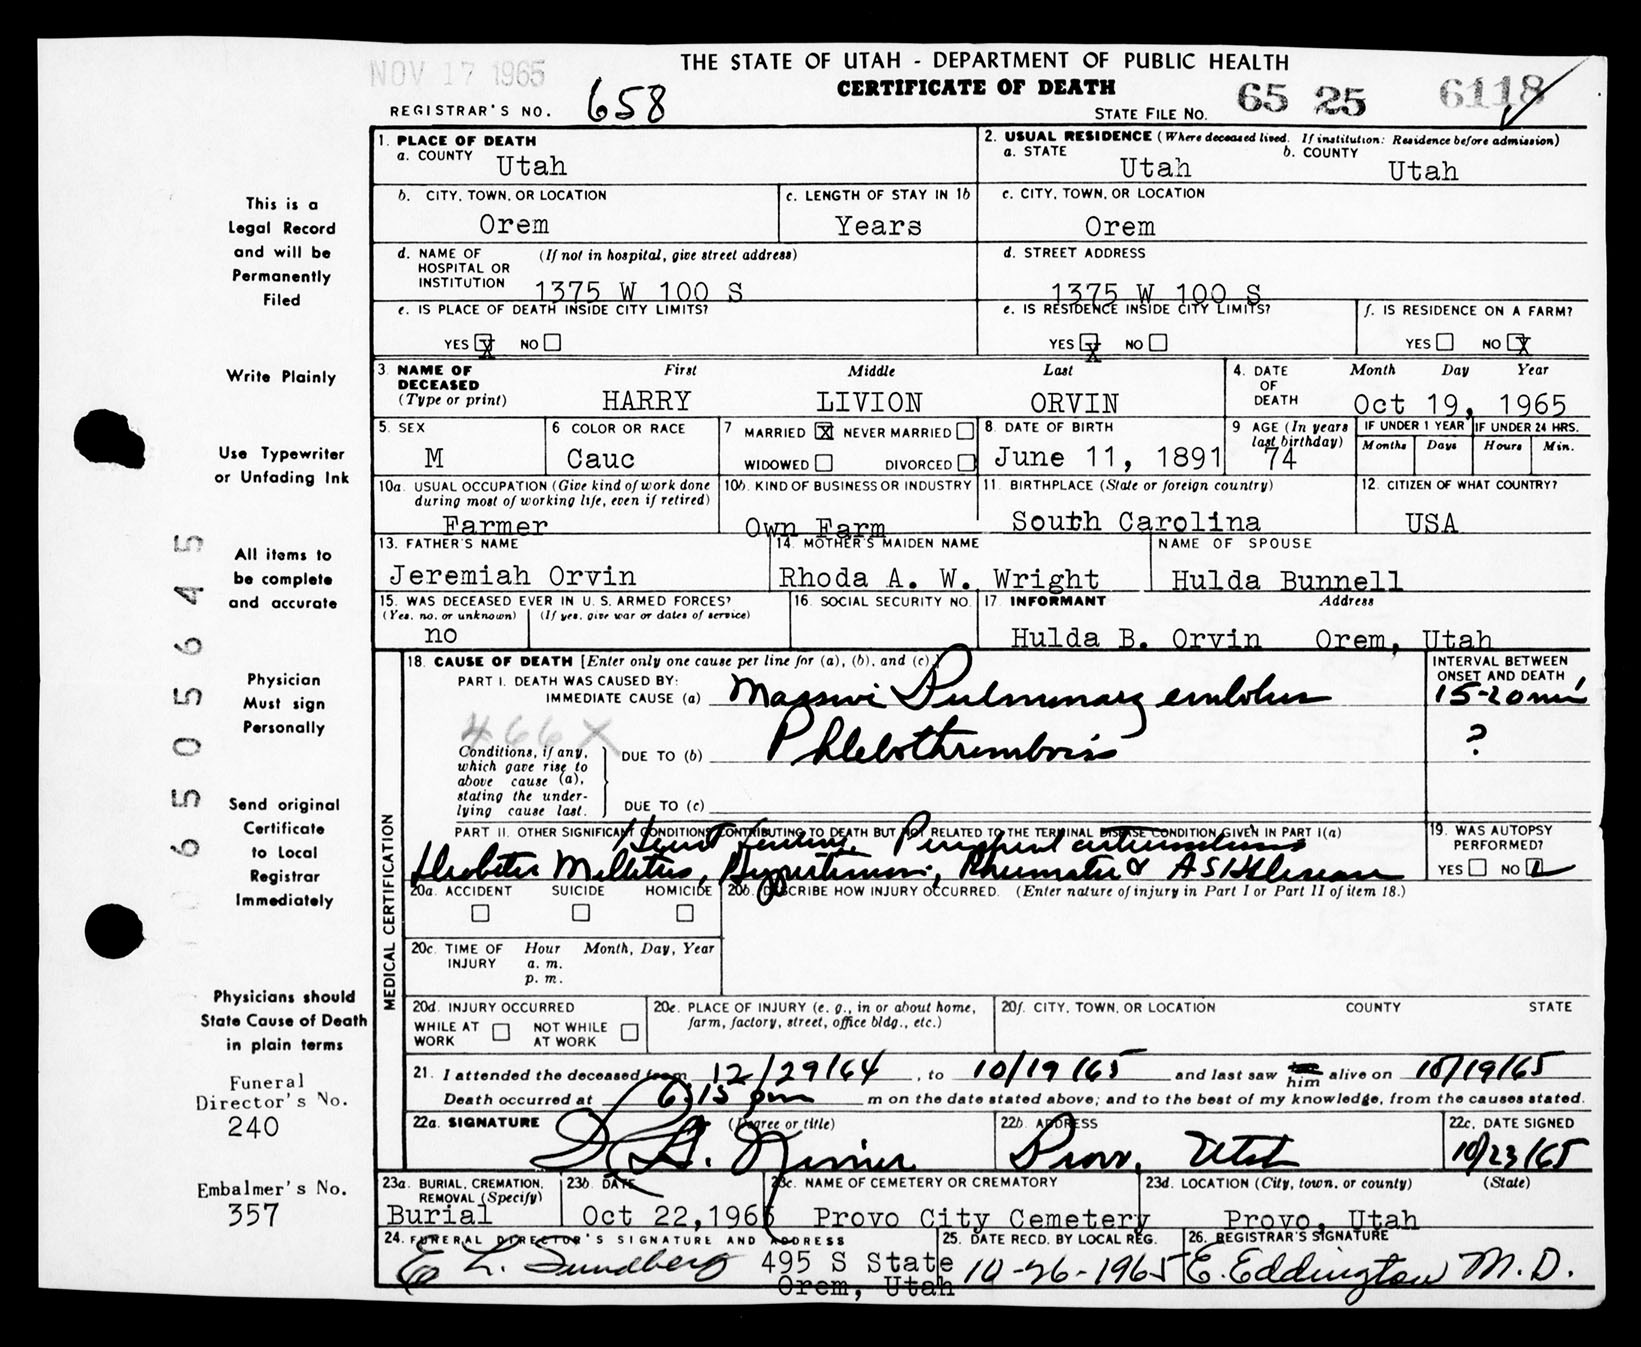 NOV 17 1965
THE STATE OF UTAH - DEPARTMENT OF PUBLIC HEALTH
CERTIFICATE OF DEATH
REGISTRAR'S NO. 658
STATE FILE NO. 65 25 6118
This is a
Legal Record
and will be
Permanently
Filed
Write Plainly
Use Typewriter
or Unfading Ink
All items to
be complete
and accurate
Physician
Must sign
Personally
Send original
Certificate
to Local
Registrar
Immediately
Physicians should
State Cause of Death
in plain terms
Funeral
Director's No.
240
Embalmer's No.
357
6505645
1. PLACE OF DEATH
a. COUNTY Utah
2. USUAL RESIDENCE (Where deceased lived. If institution: Residence before admission)
a. STATE Utah b. COUNTY Utah
b. CITY, TOWN, OR LOCATION Orem
c. LENGTH OF STAY IN 1b Years
c. CITY, TOWN, OR LOCATION Orem
d. NAME OF HOSPITAL OR INSTITUTION (If not in hospital, give street address)
1375 W 100 S
d. STREET ADDRESS
1375 W 100 S
e. IS PLACE OF DEATH INSIDE CITY LIMITS?
YES X NO
e. IS RESIDENCE INSIDE CITY LIMITS?
YES X NO
f. IS RESIDENCE ON A FARM?
YES NO X
3. NAME OF DECEASED (Type or print)
First Middle Last
HARRY LIVION ORVIN
4. DATE OF DEATH
Month Day Year
Oct 19, 1965
5. SEX
M
6 COLOR OR RACE
Cauc
7 MARRIED X NEVER MARRIED
WIDOWED DIVORCED
8. DATE OF BIRTH
June 11, 1891
9 AGE (In years last birthday)
74
IF UNDER 1 YEAR IF UNDER 24 HRS.
Months Days Hours Min.
10a. USUAL OCCUPATION (Give kind of work done during most of working life, even if retired)
Farmer
10b. KIND OF BUSINESS OR INDUSTRY
Own Farm
11. BIRTHPLACE (State or foreign country)
South Carolina
12. CITIZEN OF WHAT COUNTRY?
USA
13. FATHER'S NAME
Jeremiah Orvin
14. MOTHER'S MAIDEN NAME
Rhoda A. W. Wright
NAME OF SPOUSE
Hulda Bunnell
15. WAS DECEASED EVER IN U.S. ARMED FORCES?
(Yes, no, or unknown) (If yes, give war or dates of service)
no
16. SOCIAL SECURITY NO.
17 INFORMANT Address
Hulda B. Orvin Orem, Utah
MEDICAL CERTIFICATION
18. CAUSE OF DEATH [Enter only one cause per line for (a), (b), and (c).]
PART I. DEATH WAS CAUSED BY:
IMMEDIATE CAUSE (a) Massive Pulmonary embolus
INTERVAL BETWEEN ONSET AND DEATH
15-20 min
466X
Conditions, if any, which gave rise to above cause (a), stating the underlying cause last.
DUE TO (b) Phlebothrombosis
?
DUE TO (c)
PART II. OTHER SIGNIFICANT CONDITIONS CONTRIBUTING TO DEATH BUT NOT RELATED TO THE TERMINAL DISEASE CONDITION GIVEN IN PART I(a)
Heart failure,
Diabetes Mellitus, Hypertension, Rheumatic & ASH
19. WAS AUTOPSY PERFORMED?
YES NO
20a. ACCIDENT SUICIDE HOMICIDE
20b. DESCRIBE HOW INJURY OCCURRED. (Enter nature of injury in Part I or Part II of item 18.)
20c. TIME OF INJURY Hour Month, Day, Year
a. m.
p. m.
20d. INJURY OCCURRED
WHILE AT WORK NOT WHILE AT WORK
20e. PLACE OF INJURY (e. g., in or about home, farm, factory, street, office bldg., etc.)
20f. CITY, TOWN, OR LOCATION COUNTY STATE
21. I attended the deceased from 12/29/64, to 10/19/65 and last saw him alive on 10/19/65
Death occurred at 6:15 pm m on the date stated above; and to the best of my knowledge, from the causes stated.
22a. SIGNATURE (Degree or title)
22b. ADDRESS
Provo, Utah
22c. DATE SIGNED
10/23/65
23a. BURIAL, CREMATION, REMOVAL (Specify)
Burial
23b. DATE
Oct 22, 1965
23c. NAME OF CEMETERY OR CREMATORY
Provo City Cemetery
23d. LOCATION (City, town, or county) (State)
Provo, Utah
24. FUNERAL DIRECTOR'S SIGNATURE AND ADDRESS
E L. Sundberg 495 S State
Orem, Utah
25. DATE RECD. BY LOCAL REG.
10-26-1965
26. REGISTRAR'S SIGNATURE
E. Eddington M.D.